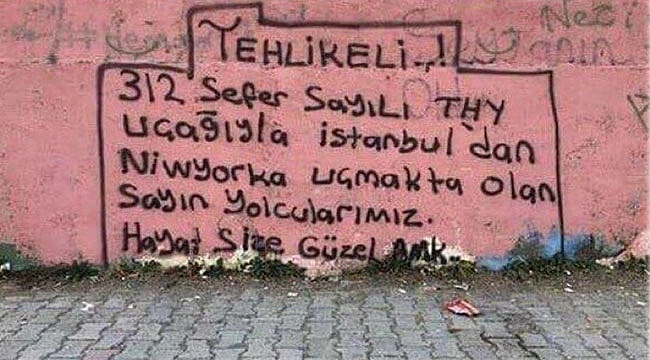 TEHLİKELİ..!
312 Sefer Sayılı THY
uçağıyla istanbul'dan
Niwyorka uçmakta olan
Sayın Yolcularımız.
Hayat Size Güzel AMK..
Neci